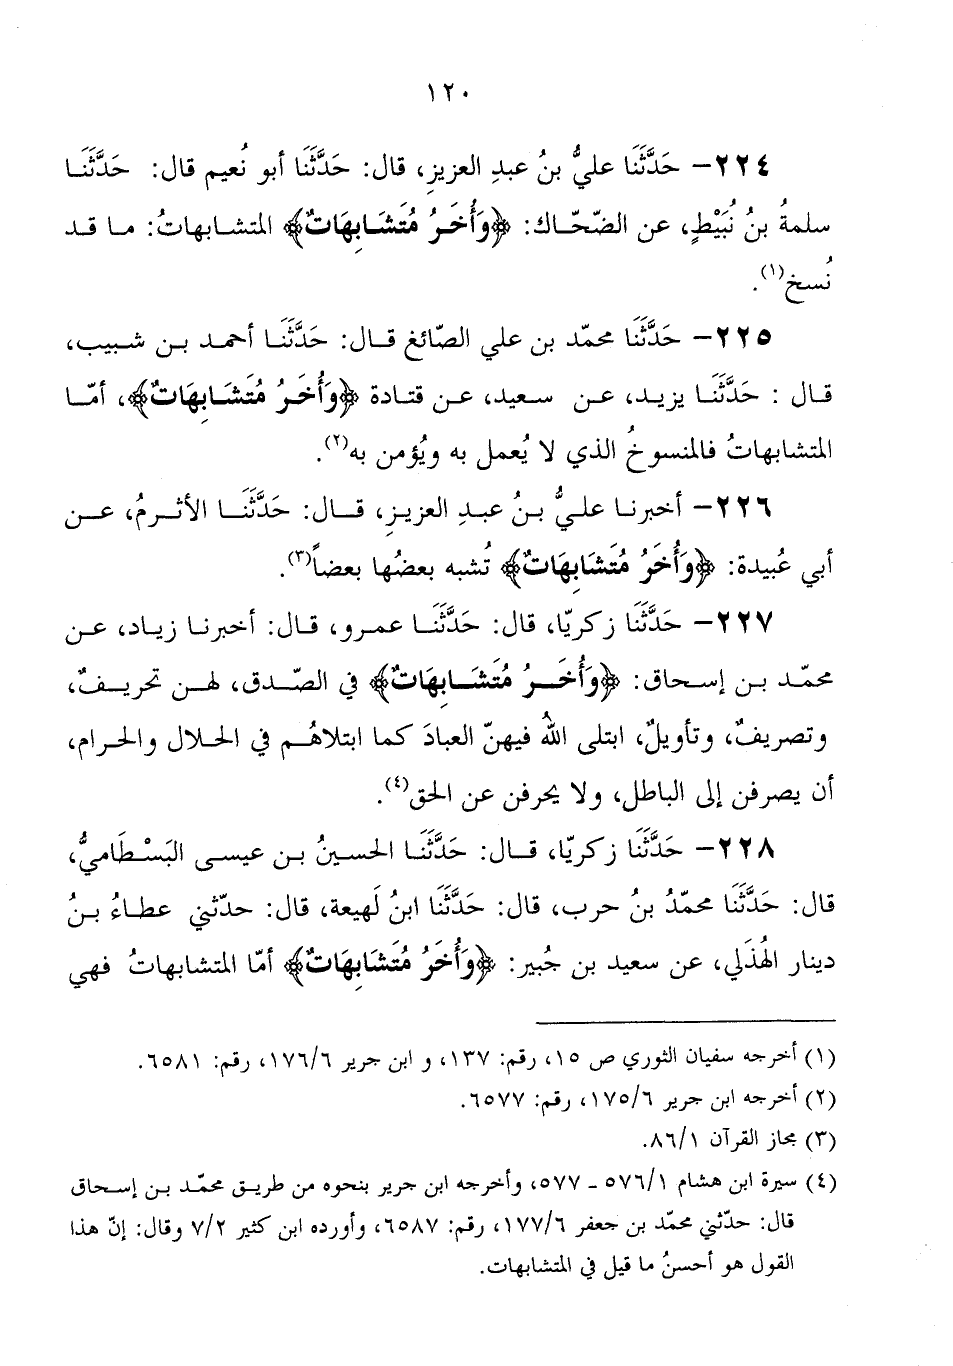 ١٢٠
٢٢٤– حَدَّثَنَا عليُّ بنُ عبدِ العزيزِ، قال: حَدَّثَنَا أبو نُعيم قال: حَدَّثَنَا
سلمةُ بنُ نُبَيْطٍ، عن الضّحّاك: ﴿وَأُخَرُ مُتَشَابِهَاتٌ﴾ المتشابهاتُ: ما قد
نُسخ(١).
٢٢٥– حَدَّثَنَا محمّد بن علي الصّائغ قال: حَدَّثَنَا أحمد بن شبيب،
قال : حَدَّثَنَا يزيد، عن سعيد، عن قتادة ﴿وَأُخَرُ مُتَشَابِهَاتٌ﴾، أمّا
المتشابهاتُ فالمنسوخُ الذي لا يُعمل به ويُؤمن به(٢).
٢٢٦– أخبرنا عليُّ بنُ عبدِ العزيزِ، قال: حَدَّثَنَا الأثرمُ، عن
أبي عُبيدة: ﴿وَأُخَرُ مُتَشَابِهَاتٌ﴾ تُشبه بعضُها بعضاً(٣).
٢٢٧– حَدَّثَنَا زكريّا، قال: حَدَّثَنَا عمرو، قال: أخبرنا زياد، عن
محمّد بن إسحاق: ﴿وَأُخَرُ مُتَشَابِهَاتٌ﴾ في الصّدق، لهن تحريفٌ،
وتصريفٌ، وتأويلٌ، ابتلى اللهُ فيهنّ العبادَ كما ابتلاهُم في الحلال والحرام،
أن يصرفن إلى الباطل، ولا يحرفن عن الحق(٤).
٢٢٨– حَدَّثَنَا زكريّا، قال: حَدَّثَنَا الحسينُ بن عيسى البَسْطَاميُّ،
قال: حَدَّثَنَا محمّدُ بنُ حرب، قال: حَدَّثَنَا ابنُ لَهيعة، قال: حدّثني عطاءُ بنُ
دينار الهُذَلي، عن سعيد بن جُبير: ﴿وَأُخَرُ مُتَشَابِهَاتٌ﴾ أمّا المتشابهاتُ فهي
(١) أخرجه سفيان الثوري ص ١٥، رقم: ١٣٧، و ابن جرير ١٧٦/٦، رقم: ٦٥٨١.
(٢) أخرجه ابن جرير ١٧٥/٦، رقم: ٦٥٧٧.
(٣) مجاز القرآن ٨٦/١.
(٤) سيرة ابن هشام ٥٧٦/١ ـ ٥٧٧، وأخرجه ابن جرير بنحوه من طريق محمّد بن إسحاق
قال: حدّثني محمّد بن جعفر ١٧٧/٦، رقم: ٦٥٨٧، وأورده ابن كثير ٧/٢ وقال: إنّ هذا
القول هو أحسنُ ما قيل في المتشابهات.